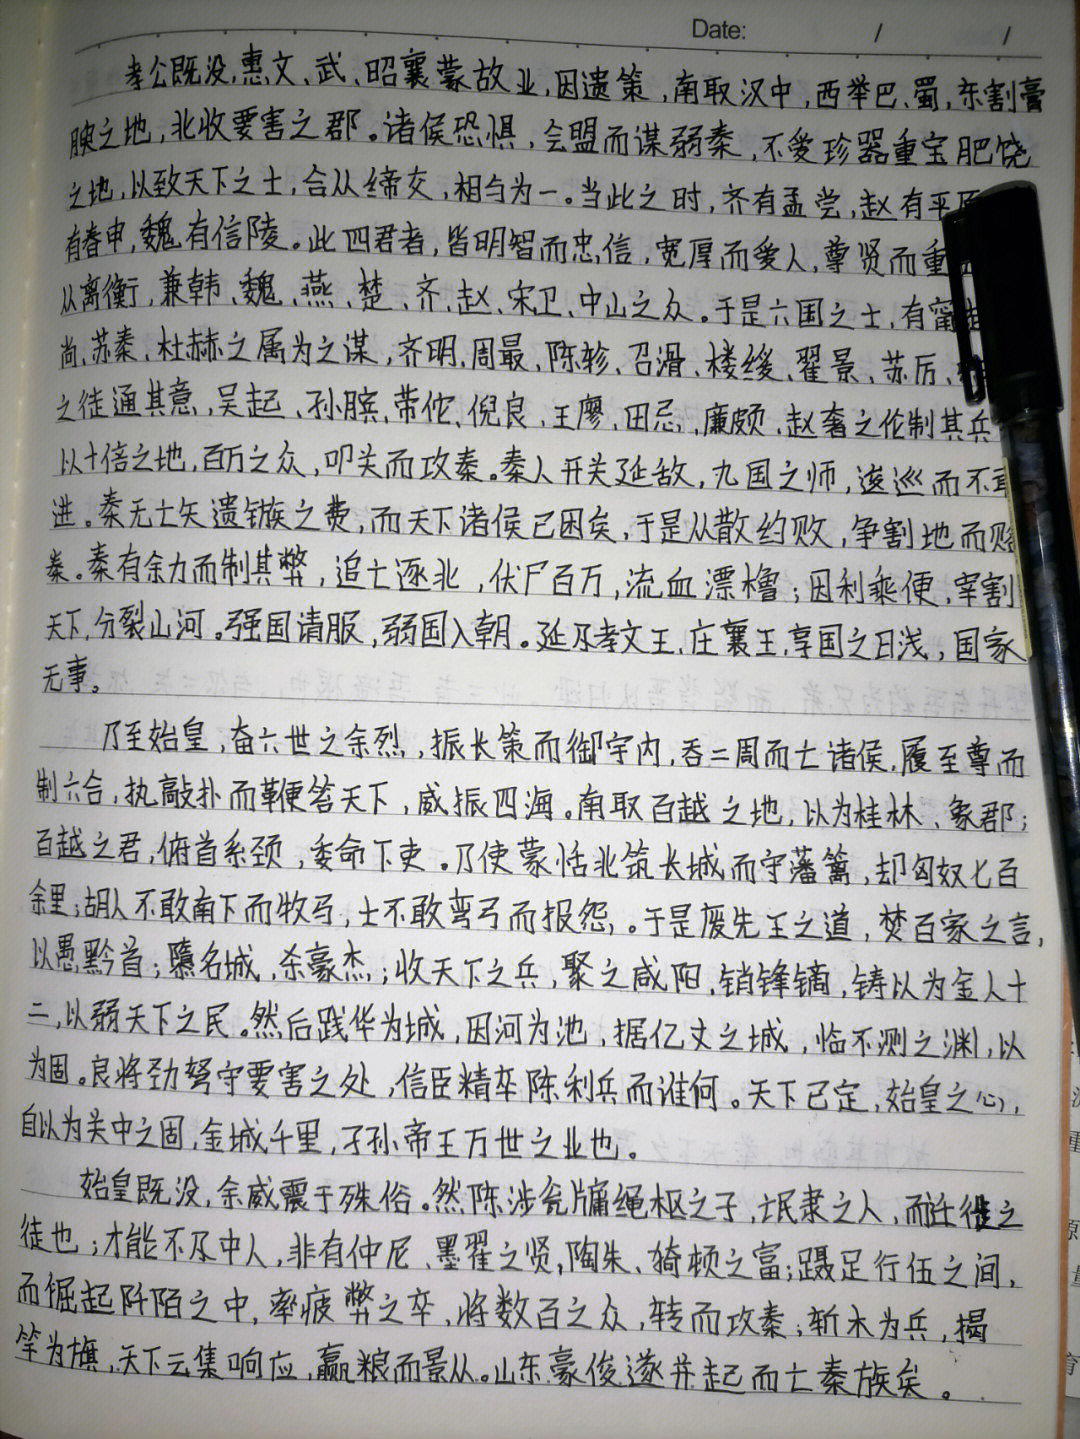 Date: / /
孝公既没,惠文、武、昭襄蒙故业,因遗策,南取汉中,西举巴、蜀,东割膏
腴之地,北收要害之郡。诸侯恐惧,会盟而谋弱秦,不爱珍器重宝肥饶
之地,以致天下之士,合从缔交,相与为一。当此之时,齐有孟尝,赵有平原
有春申,魏有信陵。此四君者,皆明智而忠信,宽厚而爱人,尊贤而重
从离衡,兼韩、魏、燕、楚、齐、赵、宋卫、中山之众。于是六国之士,有甯
尚、苏秦、杜赫之属为之谋,齐明、周最、陈轸、召滑、楼缓、翟景、苏厉、
之徒通其意,吴起、孙膑、带佗、倪良、王廖、田忌、廉颇、赵奢之伦制其兵
以十倍之地,百万之众,叩关而攻秦。秦人开关延敌,九国之师,逡巡而不敢
进。秦无士矢遗镞之费,而天下诸侯已困矣,于是从散约败,争割地而赂
秦。秦有余力而制其弊,追亡逐北,伏尸百万,流血漂橹;因利乘便,宰割
天下,分裂山河。强国请服,弱国入朝。延及孝文王、庄襄王,享国之日浅,国家
无事。
乃至始皇,奋六世之余烈,振长策而御宇内,吞二周而亡诸侯,履至尊而
制六合,执敲扑而鞭笞天下,威振四海。南取百越之地,以为桂林、象郡;
百越之君,俯首系颈,委命下吏。乃使蒙恬北筑长城而守藩篱,却匈奴七百
余里;胡人不敢南下而牧马,士不敢弯弓而报怨。于是废先王之道,焚百家之言,
以愚黔首;隳名城,杀豪杰;收天下之兵,聚之咸阳,销锋镝,铸以为金人十
二,以弱天下之民。然后践华为城,因河为池,据亿丈之城,临不测之渊,以
为固。良将劲弩守要害之处,信臣精卒陈利兵而谁何。天下已定,始皇之心,
自以为关中之固,金城千里,子孙帝王万世之业也。
始皇既没,余威震于殊俗。然陈涉瓮牖绳枢之子,氓隶之人,而迁徙之
徒也;才能不及中人,非有仲尼、墨翟之贤,陶朱、猗顿之富;蹑足行伍之间,
而倔起阡陌之中,率疲弊之卒,将数百之众,转而攻秦;斩木为兵,揭
竿为旗,天下云集响应,赢粮而景从。山东豪俊遂并起而亡秦族矣。